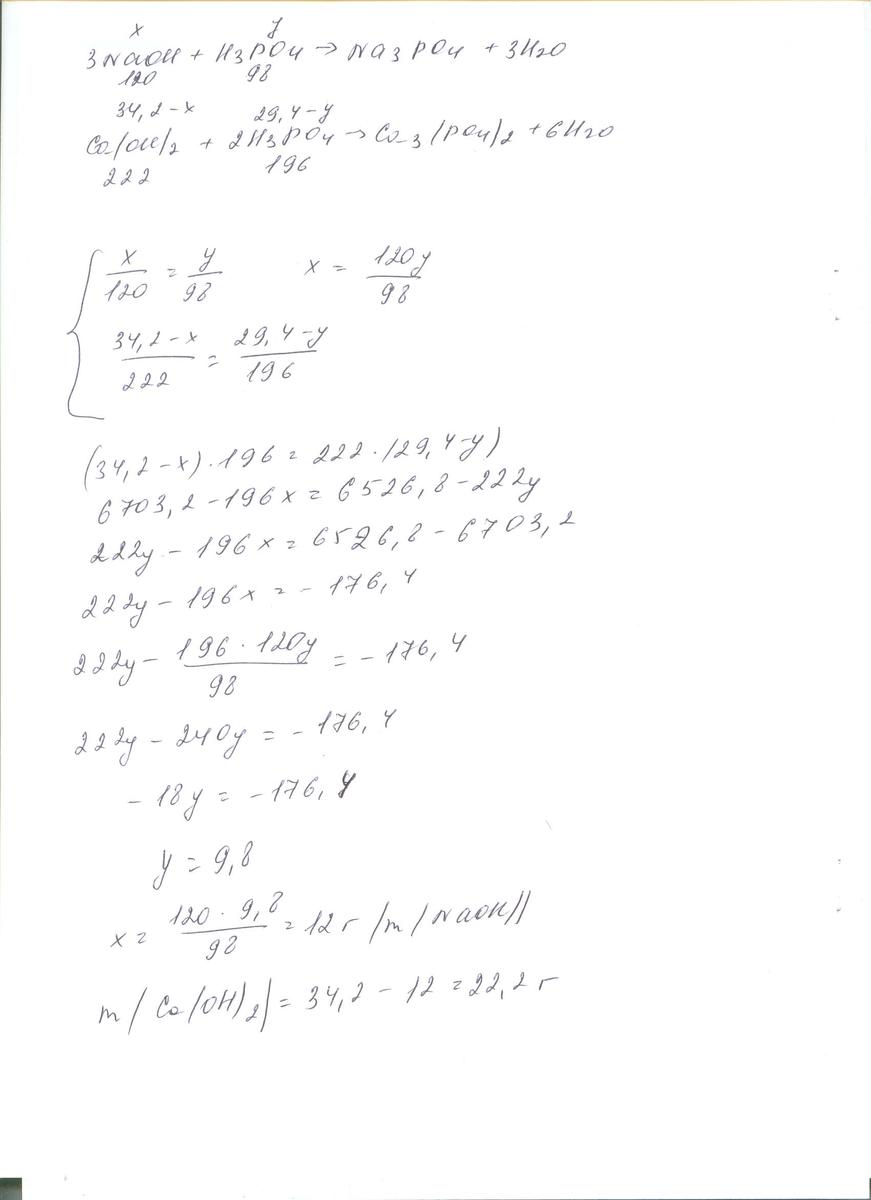 x y
3NaOH + H3PO4 → Na3PO4 + 3H2O
120 98
34,2-x 29,4-y
Ca(OH)2 + 2H3PO4 → Ca3(PO4)2 + 6H2O
222 196
x/120 = y/98 x = 120y/98
34,2-x/222 = 29,4-y/196
(34,2-x)·196 = 222·(29,4-y)
6703,2-196x = 6526,8-222y
222y-196x = 6526,8-6703,2
222y-196x = -176,4
222y - 196·120y/98 = -176,4
222y-240y = -176,4
-18y = -176,4
y = 9,8
x = 120·9,8/98 = 12 г (m(NaOH))
m(Ca(OH)2) = 34,2-12 = 22,2 г